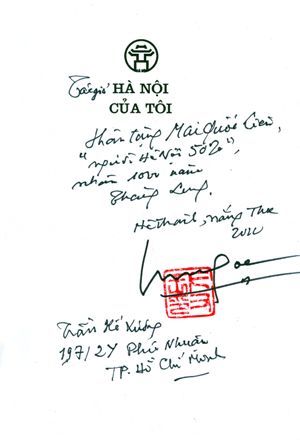 Tác giả HÀ NỘI
CỦA TÔI
thân tặng Mai Quốc Liên,
"người Hà Nội 50%",
nhân 1000 năm
Thăng Long.
nắng Thu
2010
Trần Kế Xương
197/2Y Phú Nhuận
TP. Hồ Chí Minh